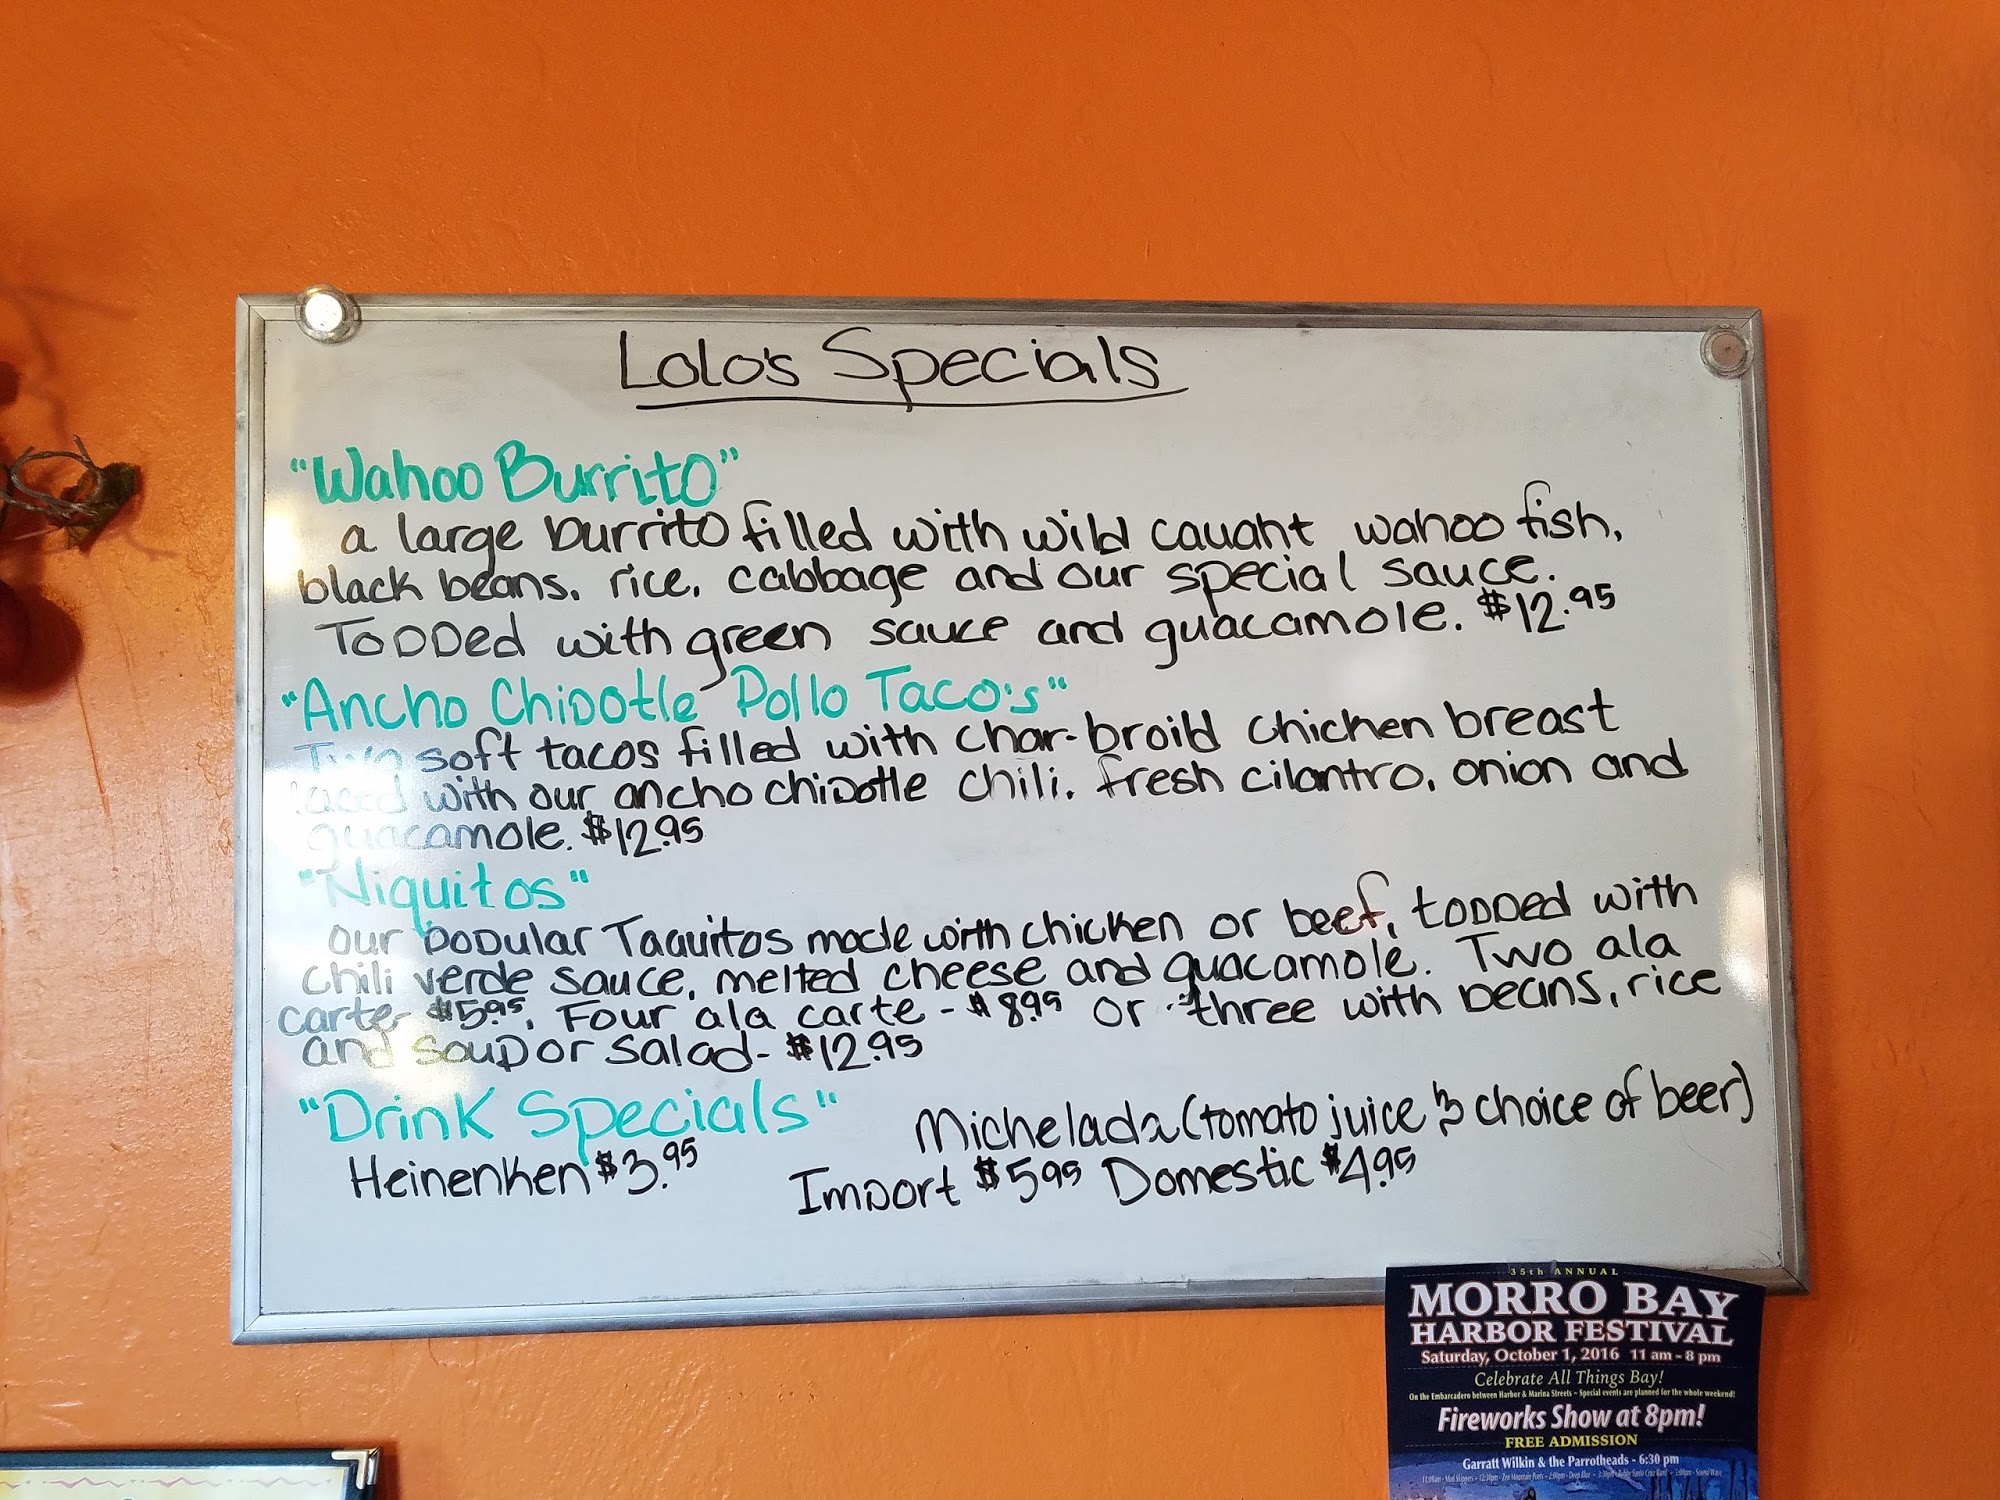 Lolo's Specials
"Wahoo Burrito"
a large burrito filled with wild caught wahoo fish,
black beans, rice, cabbage and our special sauce.
Topped with green sauce and guacamole. $12.95
"Ancho Chipotle Pollo Taco's"
Two soft tacos filled with char-broild chicken breast
laced with our ancho chipotle chili, fresh cilantro, onion and
guacamole. $12.95
"Niquitos"
our popular Taquitos made with chicken or beef, topped with
chili verde sauce, melted cheese and guacamole. Two ala
carte- $5.95, Four ala carte - $8.95 or three with beans, rice
and soup or salad- $12.95
"Drink Specials"
Heinenken $3.95
Michelada (tomato juice & choice of beer)
Import $5.95 Domestic $4.95
35th ANNUAL
MORRO BAY
HARBOR FESTIVAL
Saturday, October 1, 2016 11 am - 8 pm
Celebrate All Things Bay!
On the Embarcadero between Harbor & Marina Streets ~ Special events are planned for the whole weekend!
Fireworks Show at 8pm!
FREE ADMISSION
Garratt Wilkin & the Parrotheads - 6:30 pm